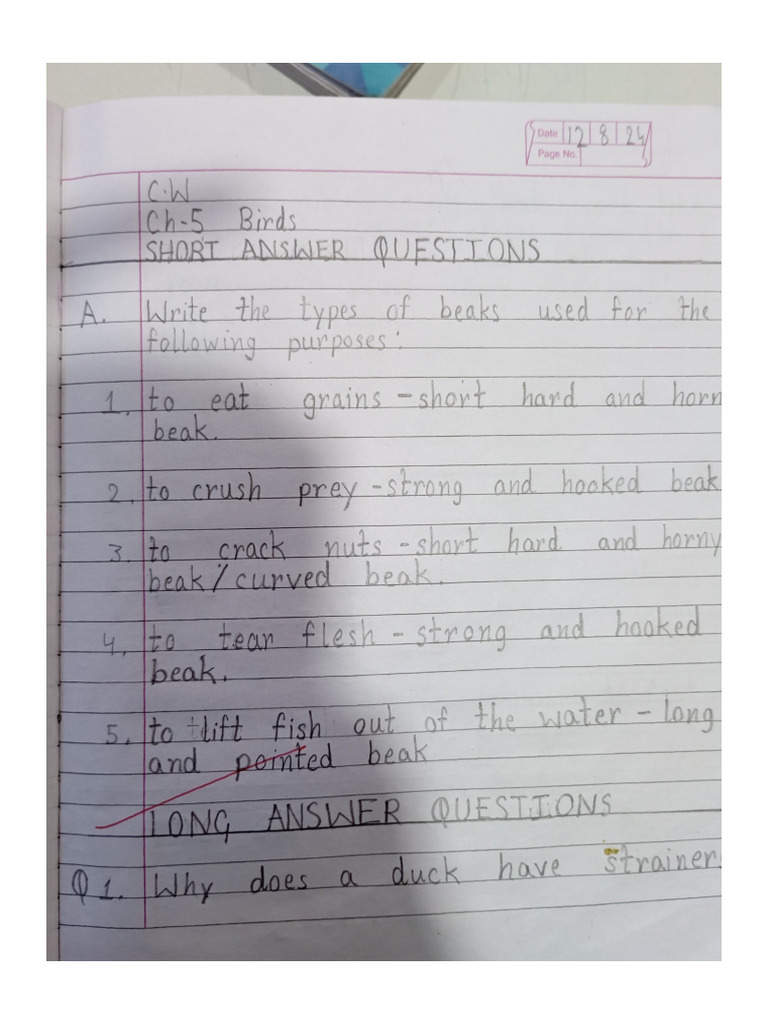 Date 12 8 24
Page No.
C.W
Ch-5 Birds
SHORT ANSWER QUESTIONS
A. Write the types of beaks used for the
following purposes:
1. to eat grains - short hard and horn
beak.
2. to crush prey - strong and hooked beak
3. to crack nuts - short hard and horny
beak/curved beak.
4. to tear flesh - strong and hooked
beak.
5. to lift fish out of the water - long
and pointed beak
LONG ANSWER QUESTIONS
Q 1. Why does a duck have strainer